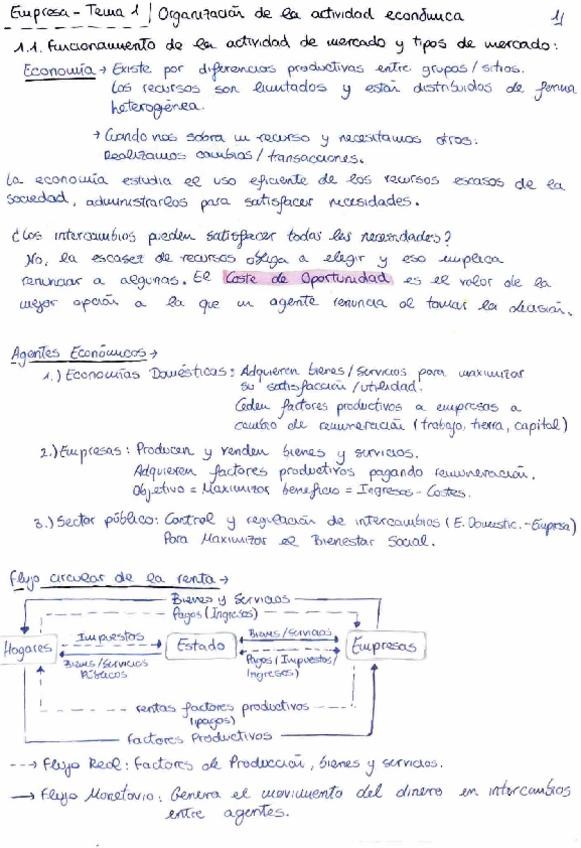 Empresa - Tema 1 / Organización de la actividad económica 1/
1.1. Funcionamiento de la actividad de mercado y tipos de mercado:
Economía → Existe por diferencias productivas entre grupos/sitios.
Los recursos son limitados y están distribuidos de forma
heterogénea.
→ Cuando nos sobra un recurso y necesitamos otros:
Realizamos cambios/transacciones.
La economía estudia el uso eficiente de los recursos escasos de la
sociedad, administrarlos para satisfacer necesidades.
¿Los intercambios pueden satisfacer todas las necesidades?
No, la escasez de recursos obliga a elegir y eso implica
renunciar a algunas. El Coste de Oportunidad es el valor de la
mejor opción a la que un agente renuncia al tomar la decisión.
Agentes Económicos →
1.) Economías Domésticas: Adquieren bienes/servicios para maximizar
su satisfacción/utilidad.
Ceden factores productivos a empresas a
cambio de remuneración (trabajo, tierra, capital)
2.) Empresas: Producen y venden bienes y servicios.
Adquieren factores productivos pagando remuneración.
Objetivo = Maximizar beneficio = Ingresos - Costes.
3.) Sector público: Control y regulación de intercambios (E. Domestic. - Empresa)
Para Maximizar el Bienestar Social.
Flujo circular de la renta →
Bienes y Servicios
Pagos (Ingresos)
Hogares
Impuestos
Bienes/Servicios
Públicos
Estado
Bienes/Servicios
Pagos (Impuestos/
Ingresos)
Empresas
rentas factores productivos
(pagos)
Factores Productivos
---> Flujo Real: Factores de Producción, bienes y servicios.
→ Flujo Monetario: Genera el movimiento del dinero en intercambios
entre agentes.